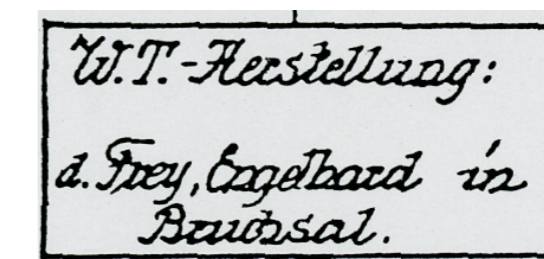 W.T.-Herstellung:
d. Frey, Engelhard in
Bruchsal.